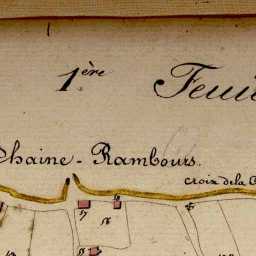 1.ère Feuil
Chaine - Rambours.
Croix de la
17
18